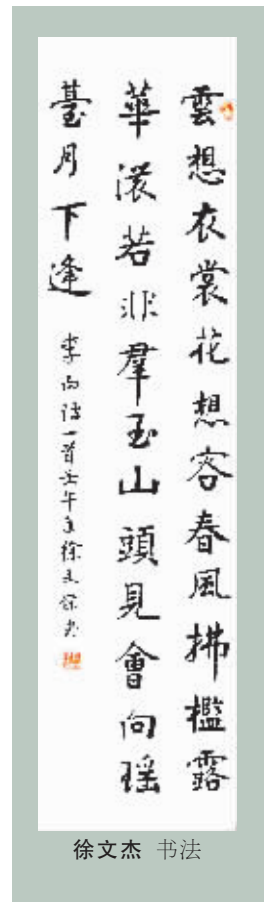 雲想衣裳花想容春風拂檻露
華濃若非羣玉山頭見會向瑤
臺月下逢
李白詩一首壬午夏徐文傑書
徐文杰 书法